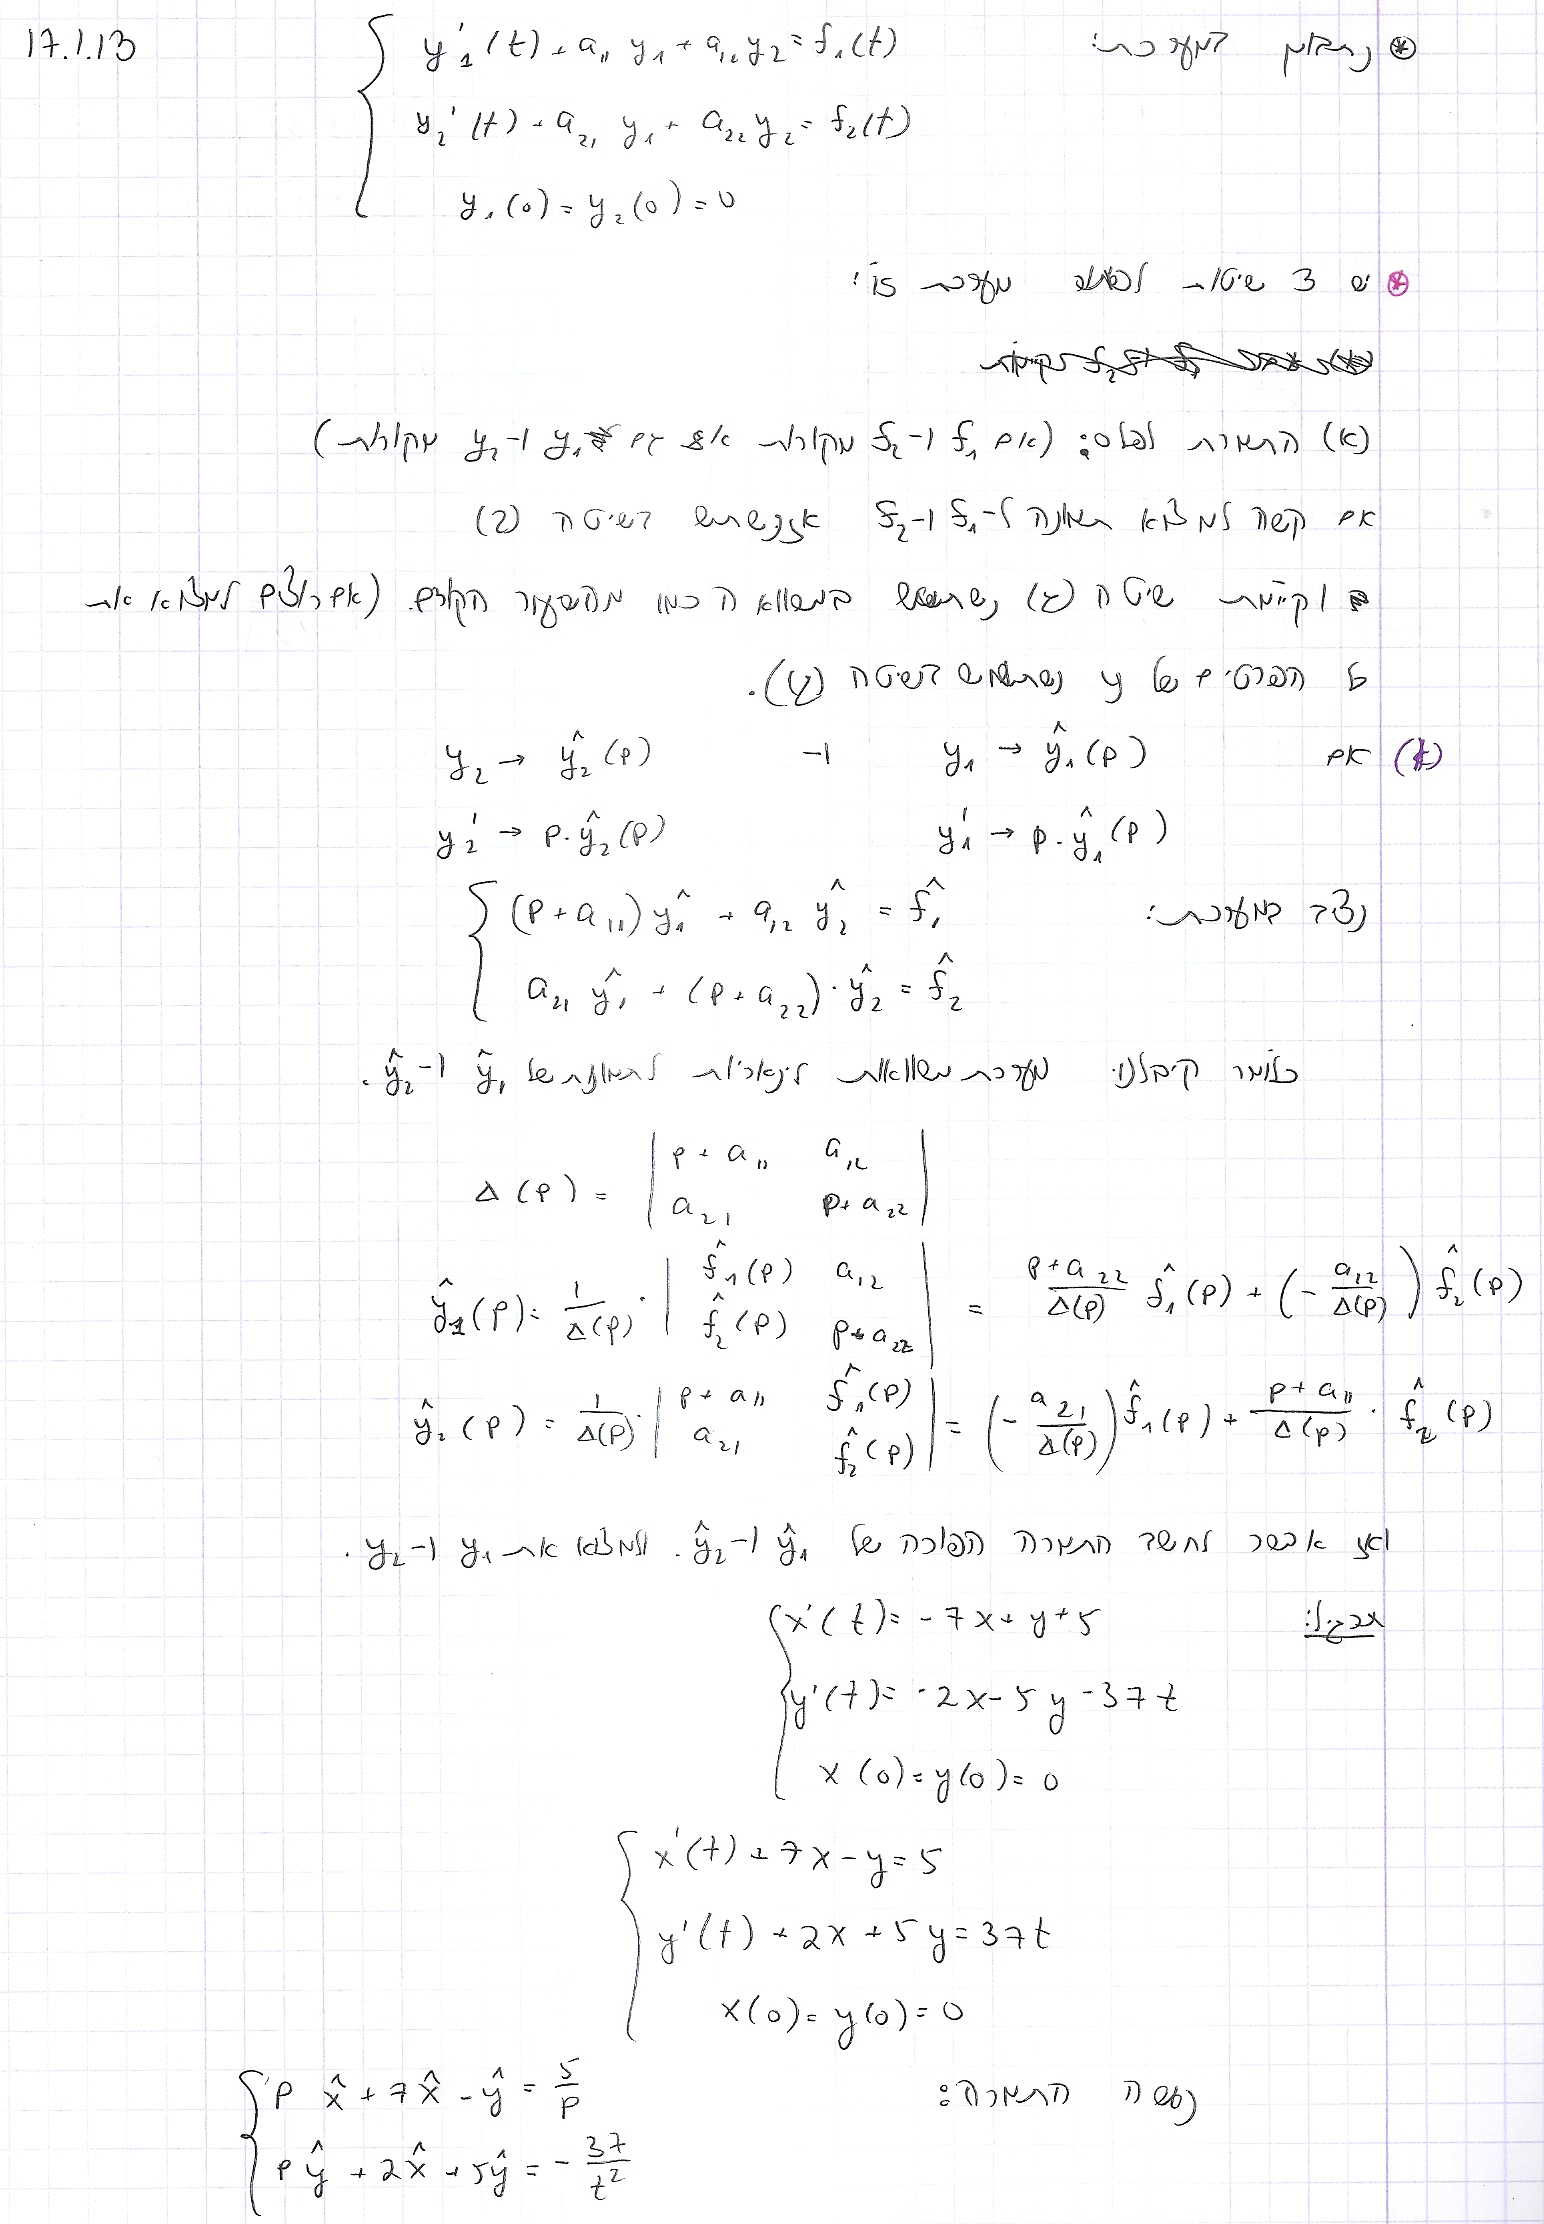 17.1.13
⊛ נתבונן במערכת: { y₁'(t) + a₁₁ y₁ + a₁₂ y₂ = f₁(t)
y₂'(t) + a₂₁ y₁ + a₂₂ y₂ = f₂(t)
y₁(0) = y₂(0) = 0
⊛ יש 3 שיטות לפתור מערכת זו:
(א) התמרת לפלס: (אם f₁ ו-f₂ מקורות אז גם y₁ ו-y₂ מקורות)
אם קשה למצוא תמונה ל-f₁ ו-f₂ נשתמש בשיטה (2)
וקיימת שיטה (ג) נשתמש כמו מהשעור הקודם. (אם רוצים למצוא את
כל הפרטים של y נשתמש בשיטה
(א) אם y₁ → ŷ₁(p) ו- y₂ → ŷ₂(p)
y₁' → p·ŷ₁(p) y₂' → p·ŷ₂(p)
נציב במערכת: { (p+a₁₁)ŷ₁ + a₁₂ ŷ₂ = f̂₁
a₂₁ ŷ₁ + (p+a₂₂)·ŷ₂ = f̂₂
כלומר קיבלנו מערכת משוואות לינאריות לתמונות של ŷ₁ ו-ŷ₂.
Δ(p) = | p+a₁₁ a₁₂ |
| a₂₁ p+a₂₂ |
ŷ₁(p) = 1/Δ(p) · | f̂₁(p) a₁₂ ; f̂₂(p) p+a₂₂ | = (p+a₂₂)/Δ(p) f̂₁(p) + (- a₁₂/Δ(p)) f̂₂(p)
ŷ₂(p) = 1/Δ(p) · | p+a₁₁ f̂₁(p) ; a₂₁ f̂₂(p) | = (- a₂₁/Δ(p)) f̂₁(p) + (p+a₁₁)/Δ(p) · f̂₂(p)
ואז אפשר לחשב התמרה הפוכה של ŷ₁ ו-ŷ₂. ולמצוא את y₁ ו-y₂.
תרגיל: { x'(t) = -7x + y + 5
y'(t) = -2x - 5y - 37t
x(0) = y(0) = 0
{ x'(t) + 7x - y = 5
y'(t) + 2x + 5y = 37t
x(0) = y(0) = 0
נעשה התמרה: { p x̂ + 7x̂ - ŷ = 5/p
p ŷ + 2x̂ + 5ŷ = - 37/t²